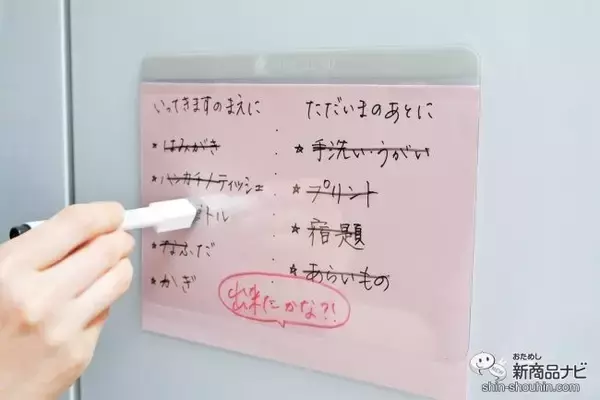 いってきますのまえに
* はみがき
* ハンカチ/ティッシュ
トル
* なふだ
* かぎ
ただいまのあとに
☆ 手洗い・うがい
☆ プリント
☆ 宿題
☆ あらいもの
出来たかな?!
おためし
新商品ナビ
shin-shouhin.com